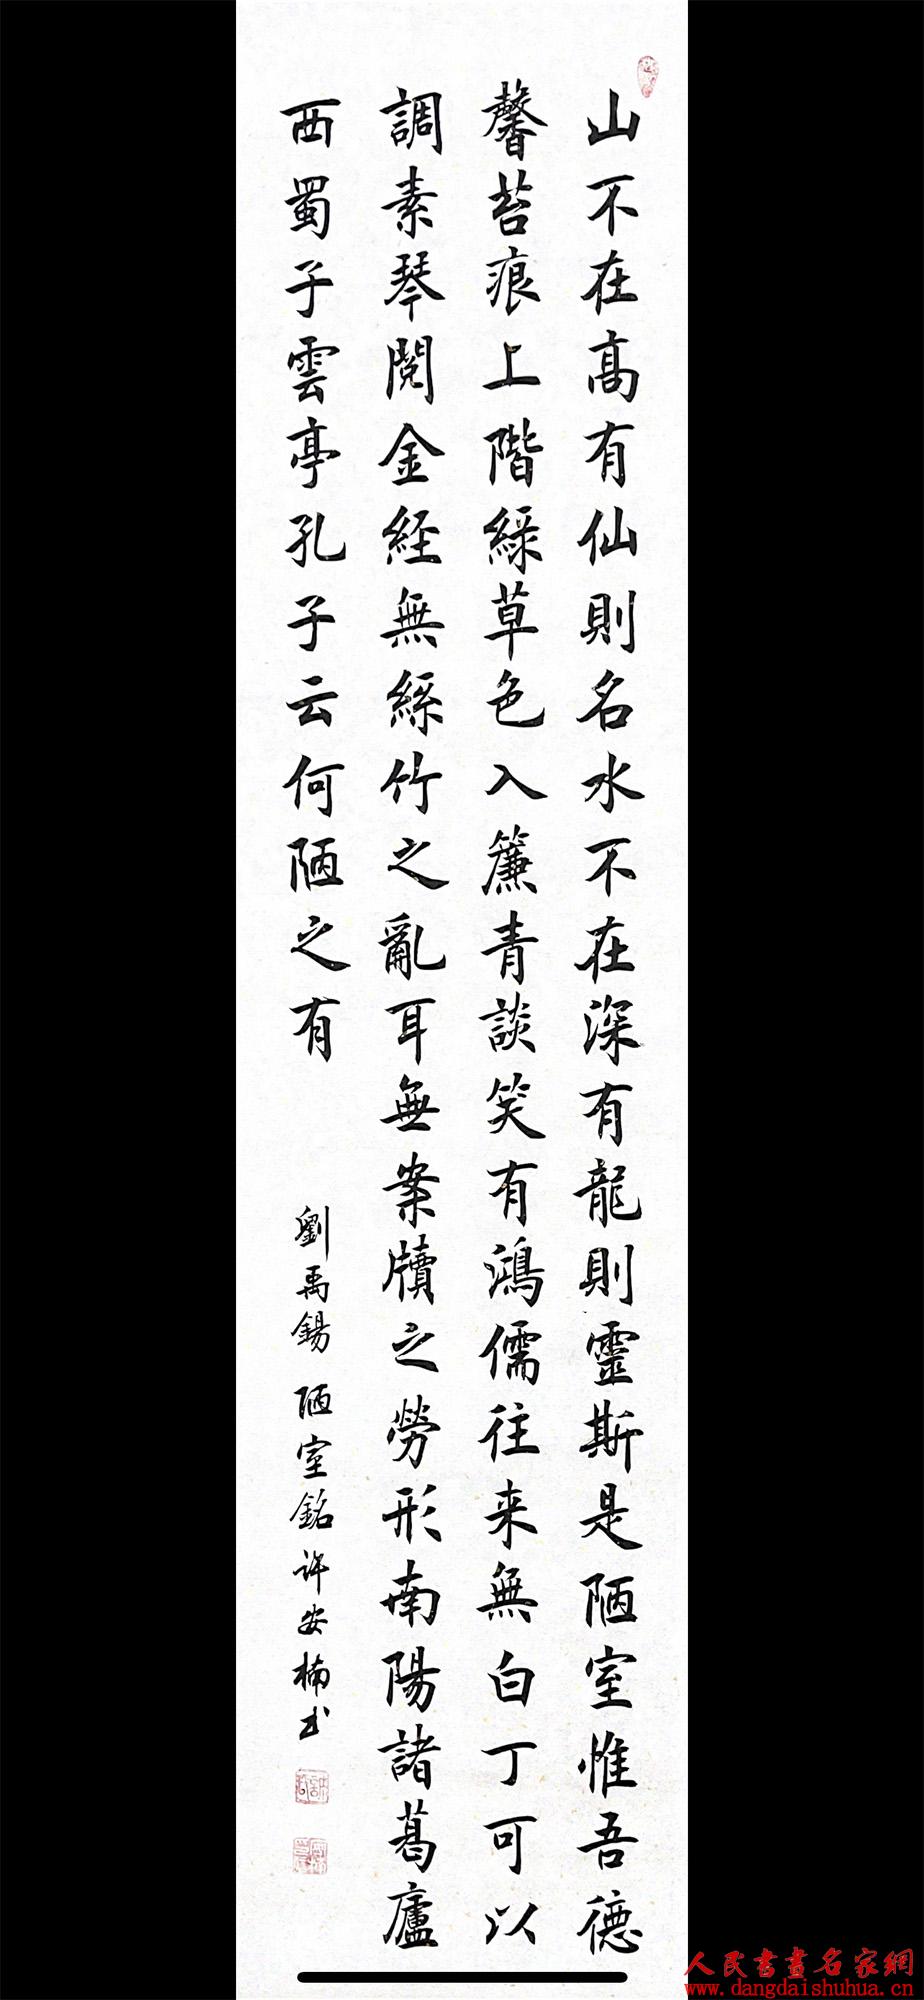 山不在高有仙則名水不在深有龍則靈斯是陋室惟吾德
馨苔痕上階綠草色入簾青談笑有鴻儒往来無白丁可以
調素琴閱金經無絲竹之亂耳無案牘之勞形南陽諸葛廬
西蜀子雲亭孔子云何陋之有
劉禹錫 陋室銘 许安楠书
人民書畫名家網
www.dangdaishuhua.com.cn